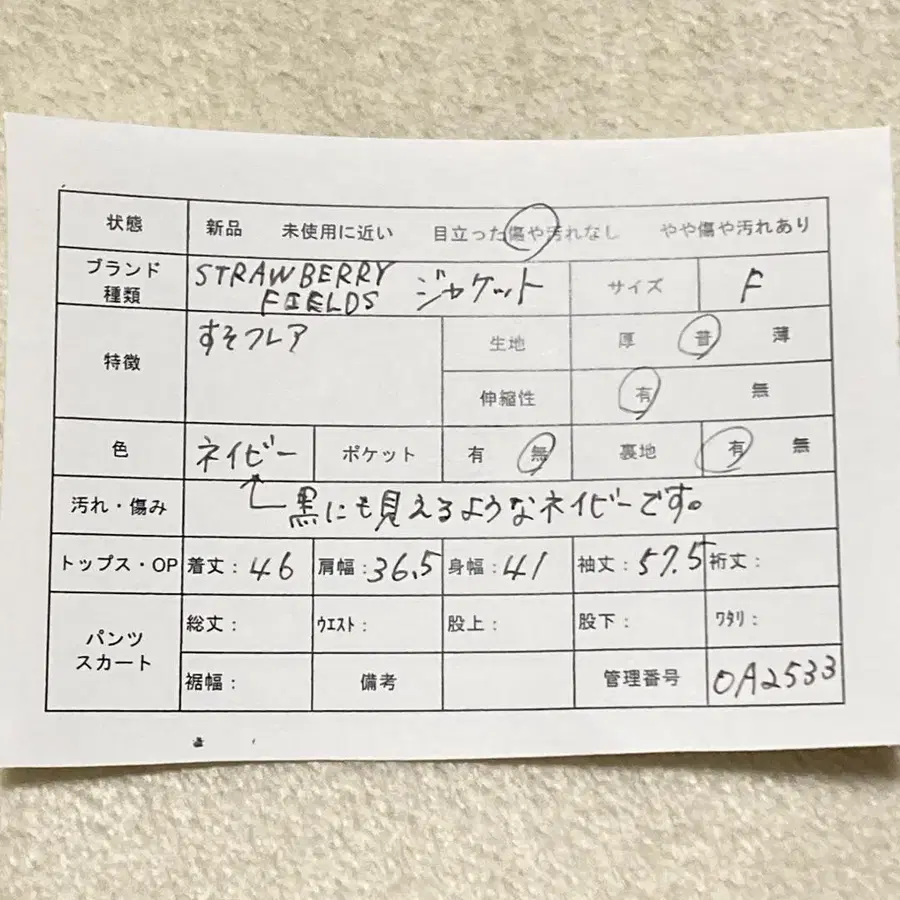 状態 新品 未使用に近い 目立った傷や汚れなし やや傷や汚れあり
ブランド
種類
STRAWBERRY
FIELDS
ジャケット サイズ F
特徴 すそフレア
生地 厚 普 薄
伸縮性 有 無
色 ネイビー ポケット 有 無 裏地 有 無
汚れ・傷み 黒にも見えるようなネイビーです。
トップス・OP 着丈:46 肩幅:36.5 身幅:41 袖丈:57.5 裄丈:
パンツ
スカート
総丈: ウエスト: 股上: 股下: ワタリ:
裾幅: 備考 管理番号 OA2533